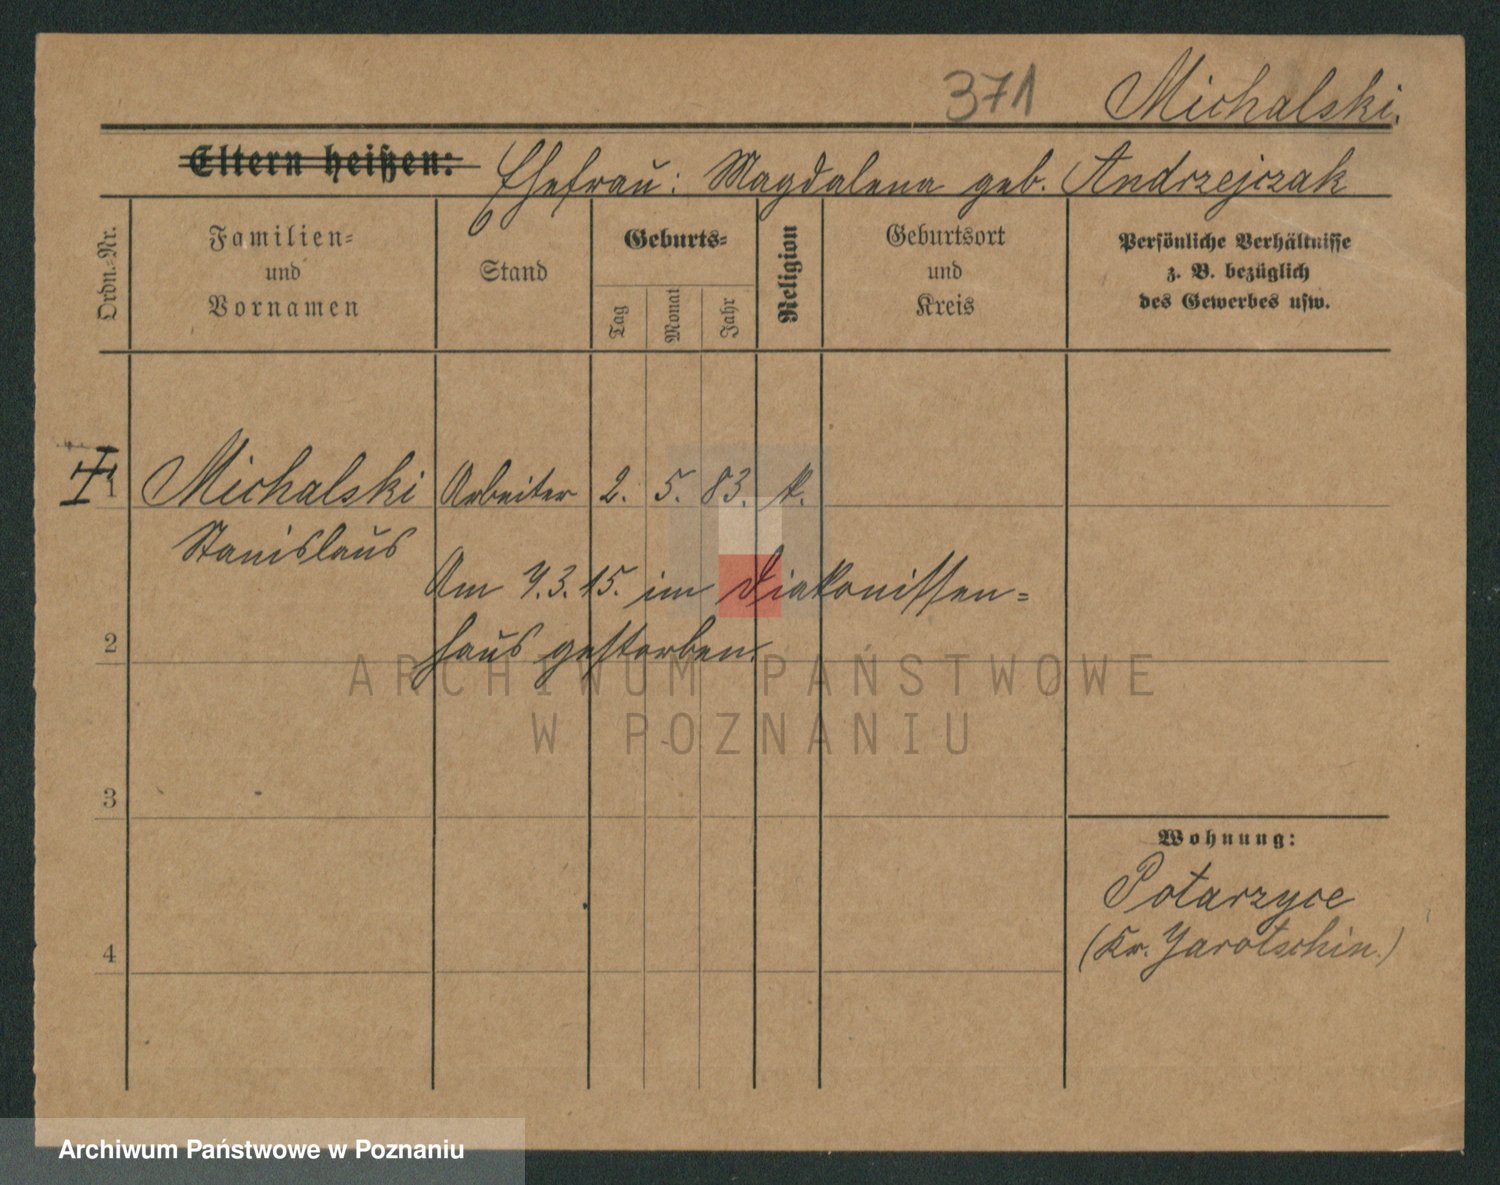 371 Michalski.
Eltern heißen: Ehefrau: Magdalena geb. Andrzejczak
Ordn.-Nr.
Familien-
und
Vornamen
Stand
Geburts-
Tag
Monat
Jahr
Religion
Geburtsort
und
Kreis
Persönliche Verhältnisse
z. B. bezüglich
des Gewerbes usw.
1 Michalski Arbeiter 2. 5. 83. k.
Stanislaus
Am 7.3.15. im Diakonissen=
haus gestorben.
2
ARCHIWUM PAŃSTWOWE
W POZNANIU
3
Wohnung:
Potarzyce
(Kr. Jarotschin.)
4
Archiwum Państwowe w Poznaniu